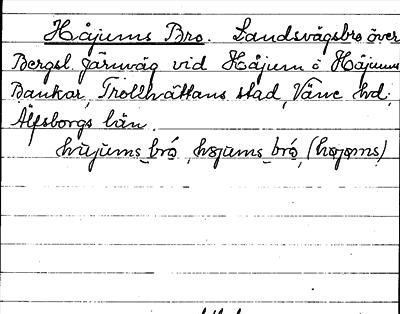 Håjums Bro. Landsvägsbro över
Bergsl. järnväg vid Håjum i Håjums
Bankar, Trollhättans stad, Väne hd,
Älfsborgs län.
hujums_bró, håjums_bró, (håjoms)